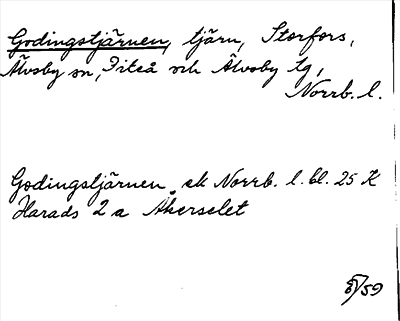 Godingstjärnen, tjärn, Storfors,
Älvsby sn, Piteå och Älvsby tg,
Norrb. l.
Godingstjärnen ek Norrb. l. bl. 25 K
Harads 2 a Åkerselet
59